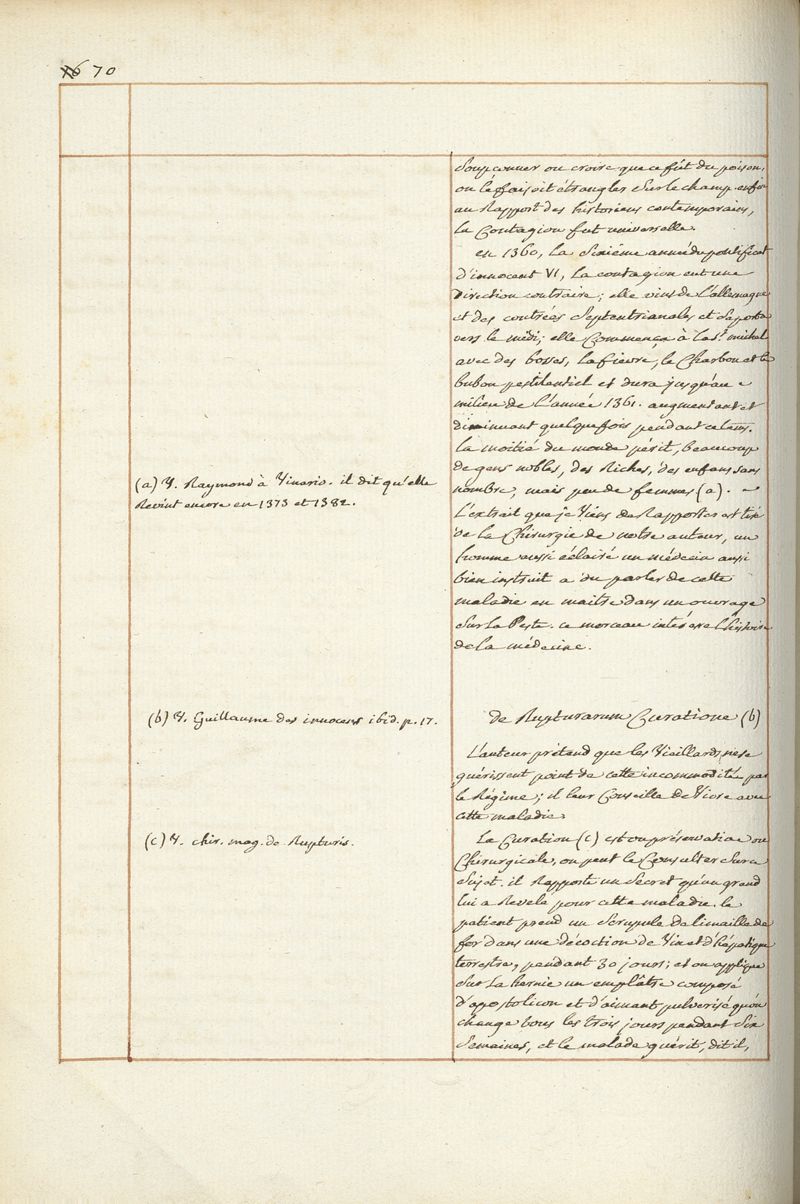 70
Soupçonner ou croire que ce fût du poison,
on le faisoit étrangler sur le champ. enfin
au Rapport des historiens contemporains,
la Contagion fut universelle.
en 1360, la Sixiéme année du pontificat
d'innocent VI, la contagion eut une
Direction contraire; elle vint de l'allemagne
et des contrées Septentrionales et se porta
vers le midi; elle Commença à la St. michel
avec des bosses, la fievre, le Charbon et le
bubon pestilentiel et dura jusqu'au
milieu de L'année 1361. augmentant et
diminuant quelquefois pendant ce tems.
la moitié du monde périt, beaucoup
de gens nobles, des Riches, des enfans sans
nombre, mais peu de femmes (a).
(a) V. Raymond à Vinario. il dit qu'elle
Revint encore en 1373 et 1382.
L'extrait que je Viens de Rapporter est tiré
de la Chirurgie de notre auteur, un
homme aussi éclairé un médecin aussi
bien instruit a du parler de cette
maladie en maitre dans un ouvrage
Sur La Peste. ce morceau intéresse l'histoire
de la médecine.
de Rupturarum Curatione (b)
(b) V. Guillaume des innocens ibid. p. 17.
L'auteur prétend que les Vieillards ne se
guérissent point de cette incommodité par
le Régime; il leur Conseille de Vivre avec
cette maladie.
La Curation (c) est ou préservative ou
Chirurgicale, on peut le Consulter Sur ce
Sujet. il Rapporte un Secret qu'un grand
lui a Revelé pour cette maladie. le
patient prend un Scrupule de limaille de
fer dans une décoction de Vin et d'hépatique
terrestre, pendant 30 jours; et on applique
Sur La hernie un emplâtre composé
d'apostolicon et d'aimant pulverisé qu'on
change tous les trois jours pendant Six
Semaines, et le malade guérit, dit il,
(c) V. chir. mag. de Rupturis.